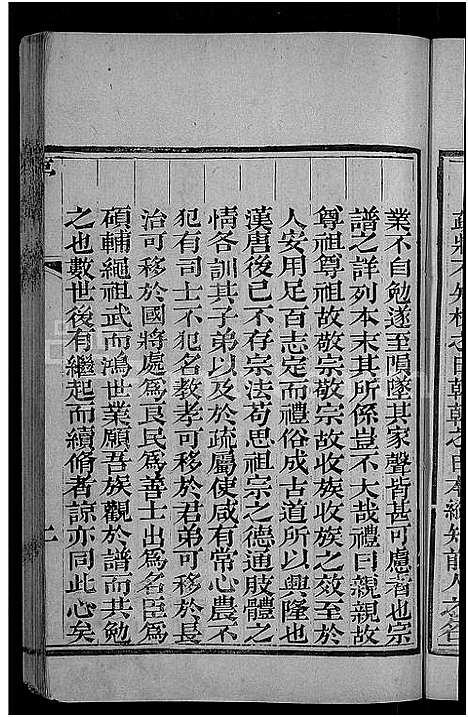 業不自勉遂至隕墜其家聲背甚可慮者也宗
譜之詳列本末其所係豈不大哉禮曰親親故
尊祖尊祖故敬宗敬宗故收族收族之效至於
人安用足百志定而禮俗成古道所以興隆也
漢唐後已不存宗法苟思祖宗之德通肢體之
情各訓其子弟以及於疏屬使咸有常心農不
犯有司士不犯名教孝可移於君弟可移於長
治可移於國將處為良民為善士出為名臣為
碩輔繩祖武而鴻世業願吾族觀於譜而共勉
之也數世後有繼起而續脩者諒亦同此心矣